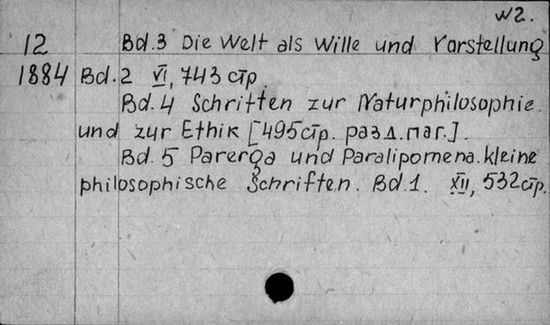 №2.
12 Bd.3 Die Welt als Wille und Vorstellung
1884 Bd.2 VI, 743 стр
Bd.4 Schriften zur Naturphilosophie
und zur Ethik [495стр. разд.паг.].
Bd.5 Parerga und Paralipomena. kleine
philosophische Schriften. Bd.1. XII, 532стр.